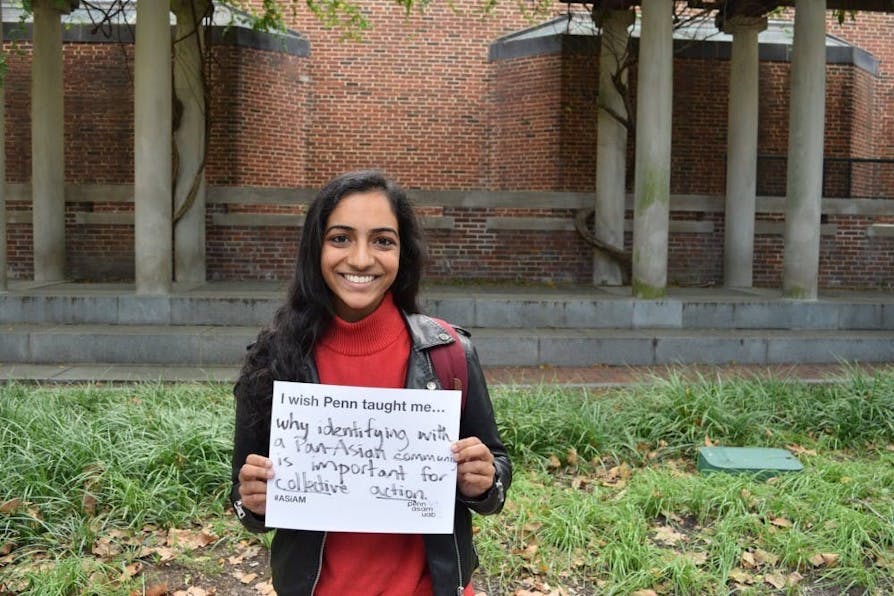 I wish Penn taught me...
why identifying with
a Pan-Asian community
is important for
collective action.
#ASIAM
penn
asam
uab